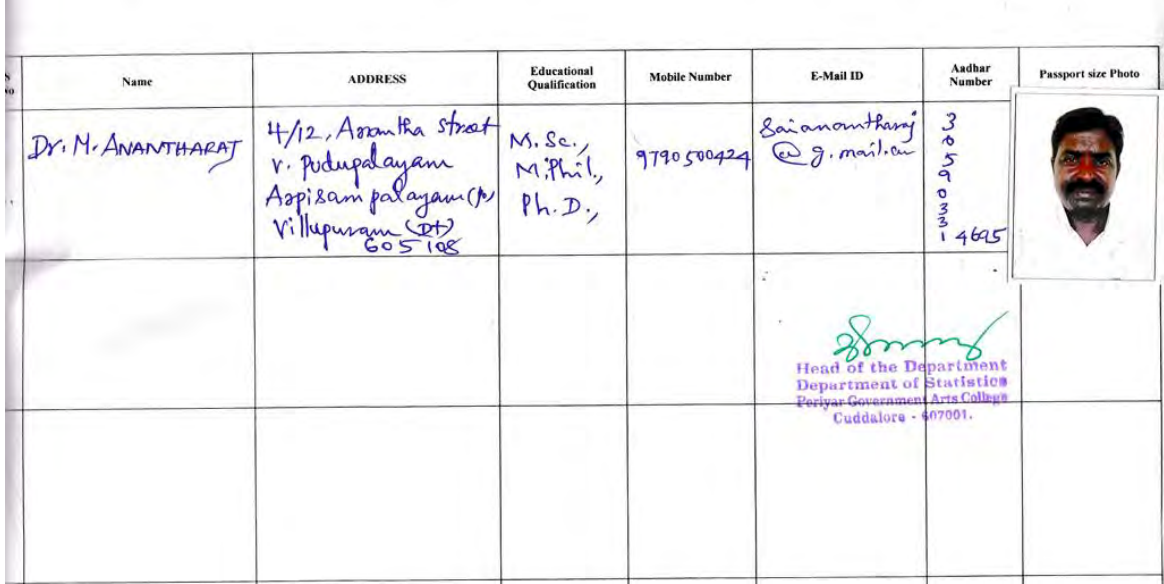 S No
Name
ADDRESS
Educational
Qualification
Mobile Number
E-Mail ID
Aadhar
Number
Passport size Photo
Dr. M. ANANTHARAJ
4/12, Anantha street
v. pudupalayam
Arpisam palayam (po)
Villupuram (Dt)
605108
M.Sc.,
M.Phil.,
Ph.D.,
9790500424
Saianantharaj
@ g.mail.com
3
0
5
9
0
3
3
1 4695
Head of the Department
Department of Statistics
Periyar Government Arts College
Cuddalore - 607001.